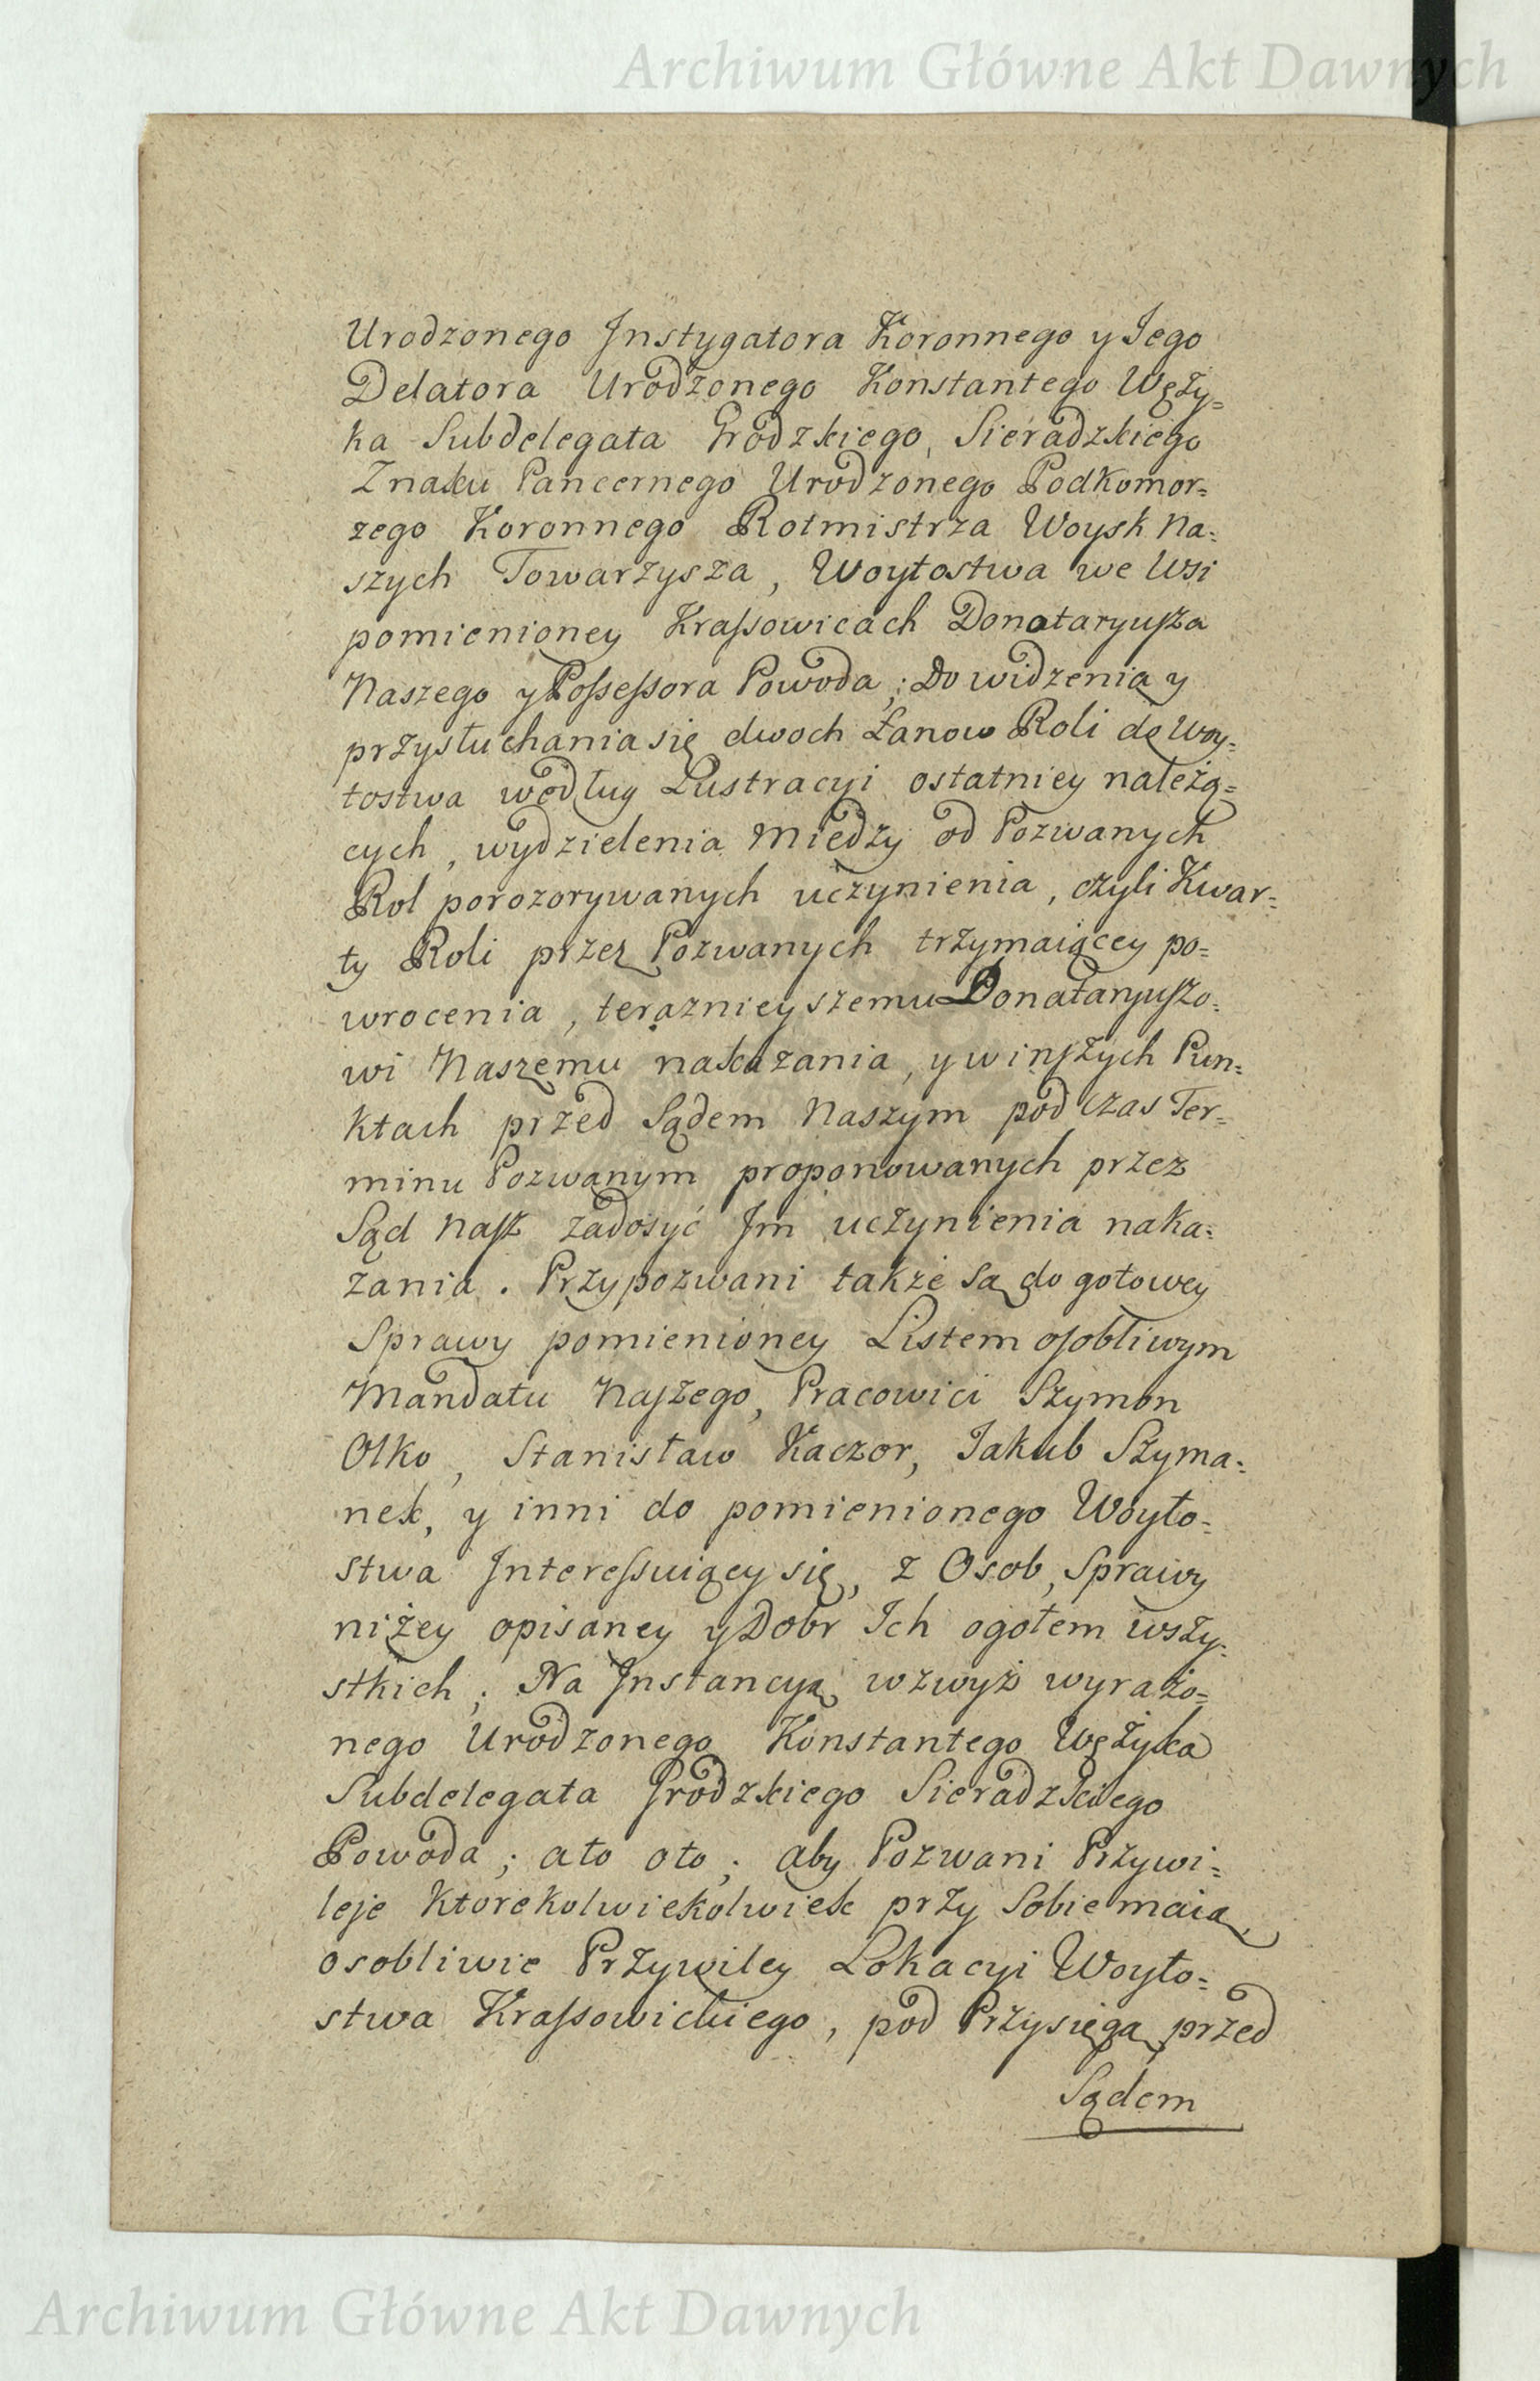 Archiwum Główne Akt Dawnych
Urodzonego Instygatora Koronnego y Jego
Delatora Urodzonego Konstantego Węży=
ka Subdelegata Grodzkiego, Sieradzkiego
Znaku Pancernego Urodzonego Podkomor=
zego Koronnego Rotmistrza Woysk Na=
szych Towarzysza, Woytostwa we Wsi
pomienioney Krassowicach Donataryusza
Naszego y Possessora Powoda; Do widzenia y
przysłuchania się dwoch Łanow Roli do Woy=
tostwa według Lustracyi ostatniey należą=
cych, wydzielenia Miedzy od Pozwanych
Rol porozorywanych uczynienia, czyli Kwar=
ty Roli przez Pozwanych trzymaiącey po=
wrocenia, teraznieyszemu Donataryuszo=
wi Naszemu nakazania, y w inszych Pun=
ktach przed Sądem Naszym pod czas Ter=
minu Pozwanym proponowanych przez
Sąd Nasz zadosyć Im uczynienia naka=
zania. Przypozwani także są do gotowey
Sprawy pomienioney Listem osobliwym
Mandatu Naszego, Pracowici Szymon
Olko, Stanisław Kaczor, Jakub Szyma=
nek, y inni do pomienionego Woyto=
stwa Interessuiącey się, z Osob, Sprawy
niżey opisaney y Dobr Ich ogołem wszy=
stkich; Na Instancyą wzwyż wyrażo=
nego Urodzonego Konstantego Wężyka
Subdelegata Grodzkiego Sieradzkiego
Powoda; ato oto; aby Pozwani Przywi=
leje Ktorekolwiekolwiek przy sobie maią,
osobliwie Przywiley Lokacyi Woyto=
stwa Krassowickiego, pod Przysięgą przed
Sądem
Archiwum Główne Akt Dawnych